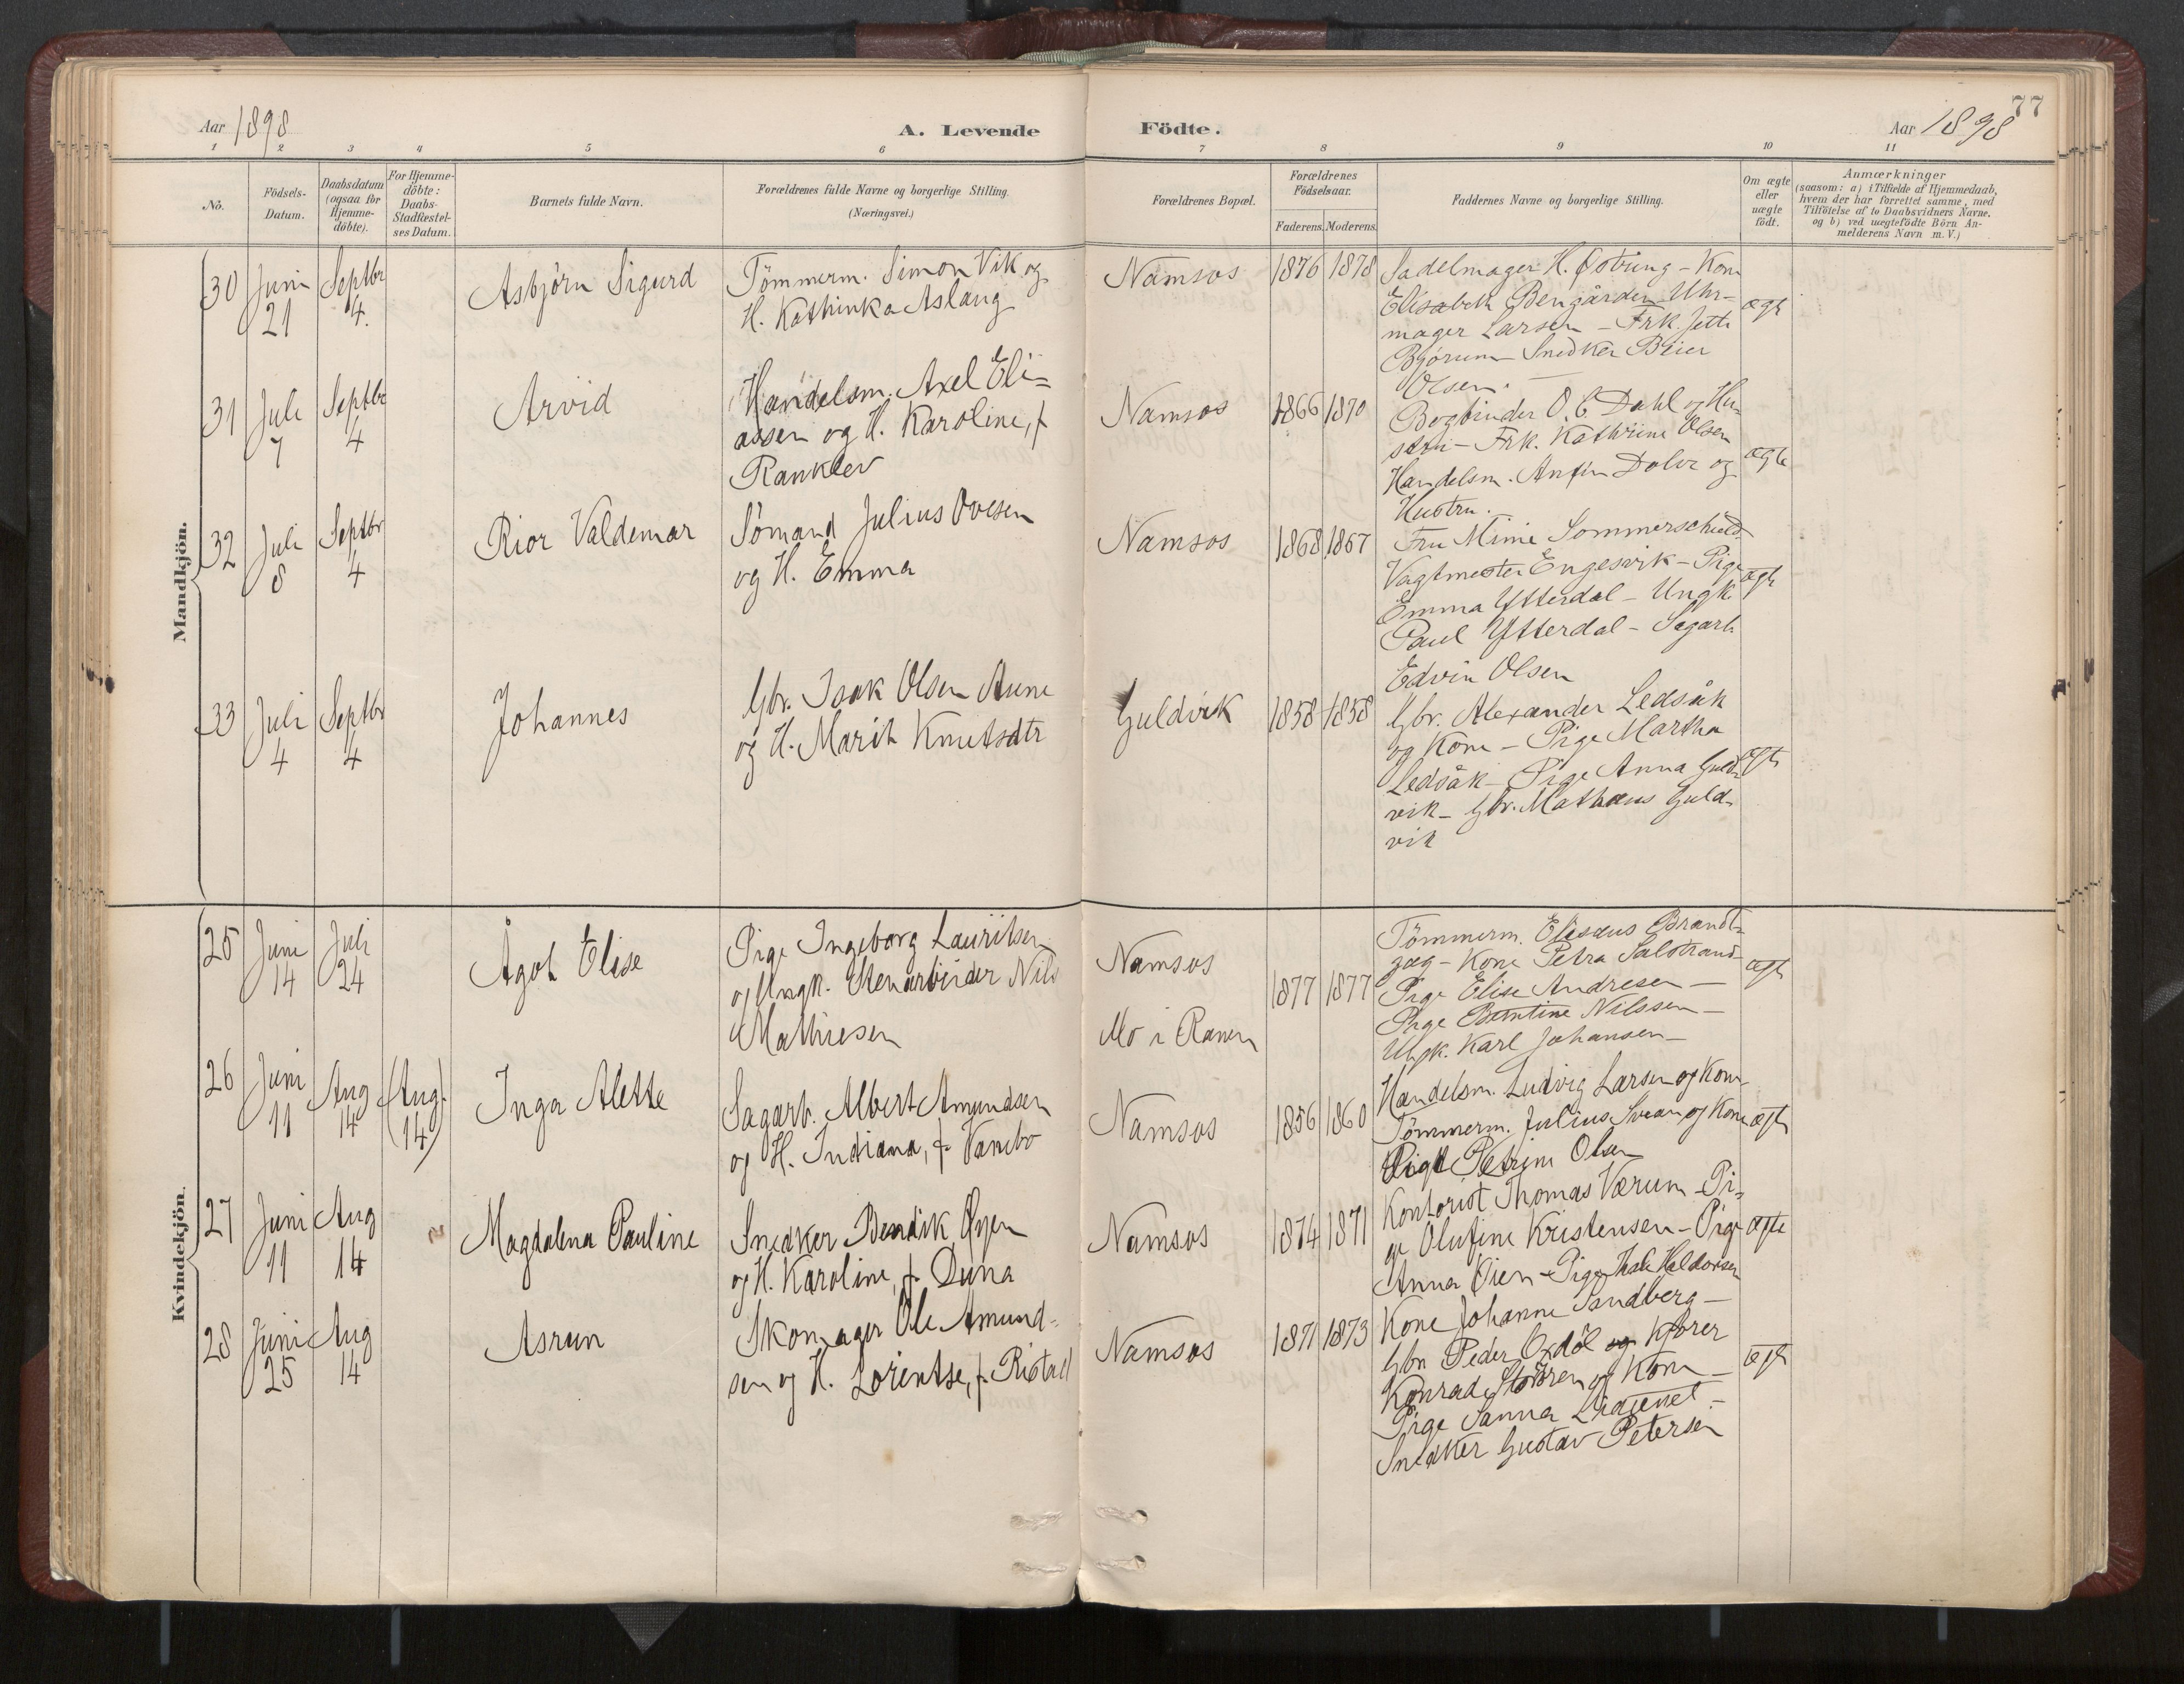 Aar 1898
A. Levende
Födte.
Aar 1898
77
1 2 3 4 5 6 7 8 9 10 11
No.
Födsels-
Datum.
Daabsdatum
(ogsaa for
Hjemme-
döbte).
For Hjemme-
döbte:
Daabs-
Stadfæstel-
ses Datum.
Barnets fulde Navn.
Forældrenes fulde Navne og borgerlige Stilling.
(Næringsvei.)
Forældrenes Bopæl.
Forældrenes
Födselsaar.
Faderens. Moderens.
Faddernes Navne og borgerlige Stilling.
Om ægte
eller
uægte
födt.
Anmærkninger
(saasom: a) i Tilfælde af Hjemmedaab,
hvem der har forrettet samme, med
Tilföielse af to Daabsvidners Navne,
og b) ved uægtefödte Börn An-
melderens Navn m. V.)
Mandkjön.
30
Juni
21
Septbr
4.
Asbjörn Sigurd
Tömmerm. Simon Vik og
H. Kathinka Aslaug
Namsos
1876 1878
Sadelmager H. - Kone
Elisabeth Bengården Uhr-
mager Larsen - Frk. Jette
Bjørum - Snedker Beier
Olsen.
ægte
31
Juli
7
Septbr
4
Arvid
Handelsm. Axel Eli=
assen og H. Karoline, f
Ranklev
Namsos
1866 1870
Bogbinder O. C. Dahl og Hu-
stru - Frk. Kathrine Olsen
Handelsm. Anfin Dolve og
Hustru.
ægte
32
Juli
8
Septbr
4
Rior Valdemar
Sömand Julius Ovesen
og H. Emma
Namsos
1868 1867
Fru Mimi Sommerschield
Vagtmester Engesvik - Pige
Emma Ytterdal - Ungk.
Paul Ytterdal - Sagarb.
Edvin Olsen
ægte
33
Juli
4
Septbr
4
Johannes
Gbr. Isak Olsen Aune
og H. Marit Knutsdtr
Guldvik
1858 1858
Gbr. Alexander Ledsåk
og Kone - Pige Martha
Ledsåk - Pige Anna Guld-
vik - Gbr. Mathæus Guld-
vik
ægte
Kvindekjön.
25
Juni
14
Juli
24
Ågot Elise
Pige Ingeborg Lauritsen
og Ungk. Stenarbeider Nils
Mathiesen
Namsos
Mo i Ranen
1877 1877
Tömmerm. Elisæus Brandt-
zæg - Kone Petra Salstrand
Pige Elise Andresen -
Pige Berntine Nilssen -
Ungk. Karl Johansen -
ægte
26
Juni
11
Aug
14
(Aug.
14)
Inga Alette
Sagarb. Albert Amundsen
og H. Indiana, f. Vanebo
Namsos
1856 1860
Handelsm. Ludvig Larsen og Kone
Tömmerm. Julius Svean og Kone
Pige Petrine Olsen
ægte
27
Juni
11
Aug
14
Magdalena Pauline
Snedker Bendik Øyen
og H. Karoline, f. Duna
Namsos
1874 1871
Kontorist Thomas Værum - Pi-
ge Olufine Kristensen - Pige
Anna Øien - Pige Haldorsen
ægte
28
Juni
25
Aug
14
Asrun
Skomager Ole Amund-
sen og H. Lorentse, f. Ristad
Namsos
1871 1873
Kone Johanne Sandberg -
Gbr. Peder Oxdöl og Kjører
Konrad Stören og Kone
Pige Sanna
Snedker Gustav Petersen
ægte